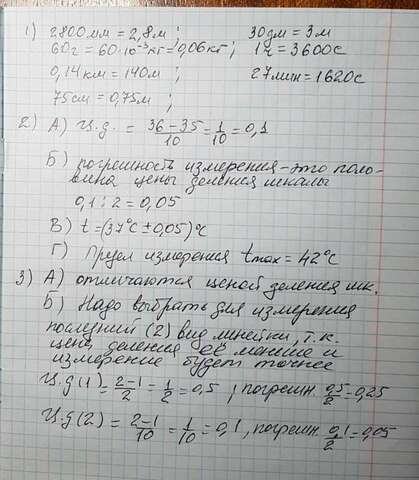 1) 2800мм = 2,8м ; 30дм = 3м
60г = 60·10⁻³кг = 0,06кг ; 1ч = 3600с
0,14км = 140м ; 27мин = 1620с
75см = 0,75м ;
2) А) Ц.д. = 36-35/10 = 1/10 = 0,1
Б) погрешность измерения - это поло-
вина цены деления шкалы
0,1 : 2 = 0,05
В) t = (37°C ± 0,05)°C
Г) Предел измерения tmax = 42°C
3) А) отличаются ценой деления шк.
Б) Надо выбрать для измерения
последний (2) вид линейки, т.к.
цена деления её меньше и
измерение будет точнее
Ц.д(1) = 2-1/2 = 1/2 = 0,5 ; погрешн. 0,5/2 = 0,25
Ц.д(2) = 2-1/10 = 1/10 = 0,1, погрешн. 0,1/2 = 0,05